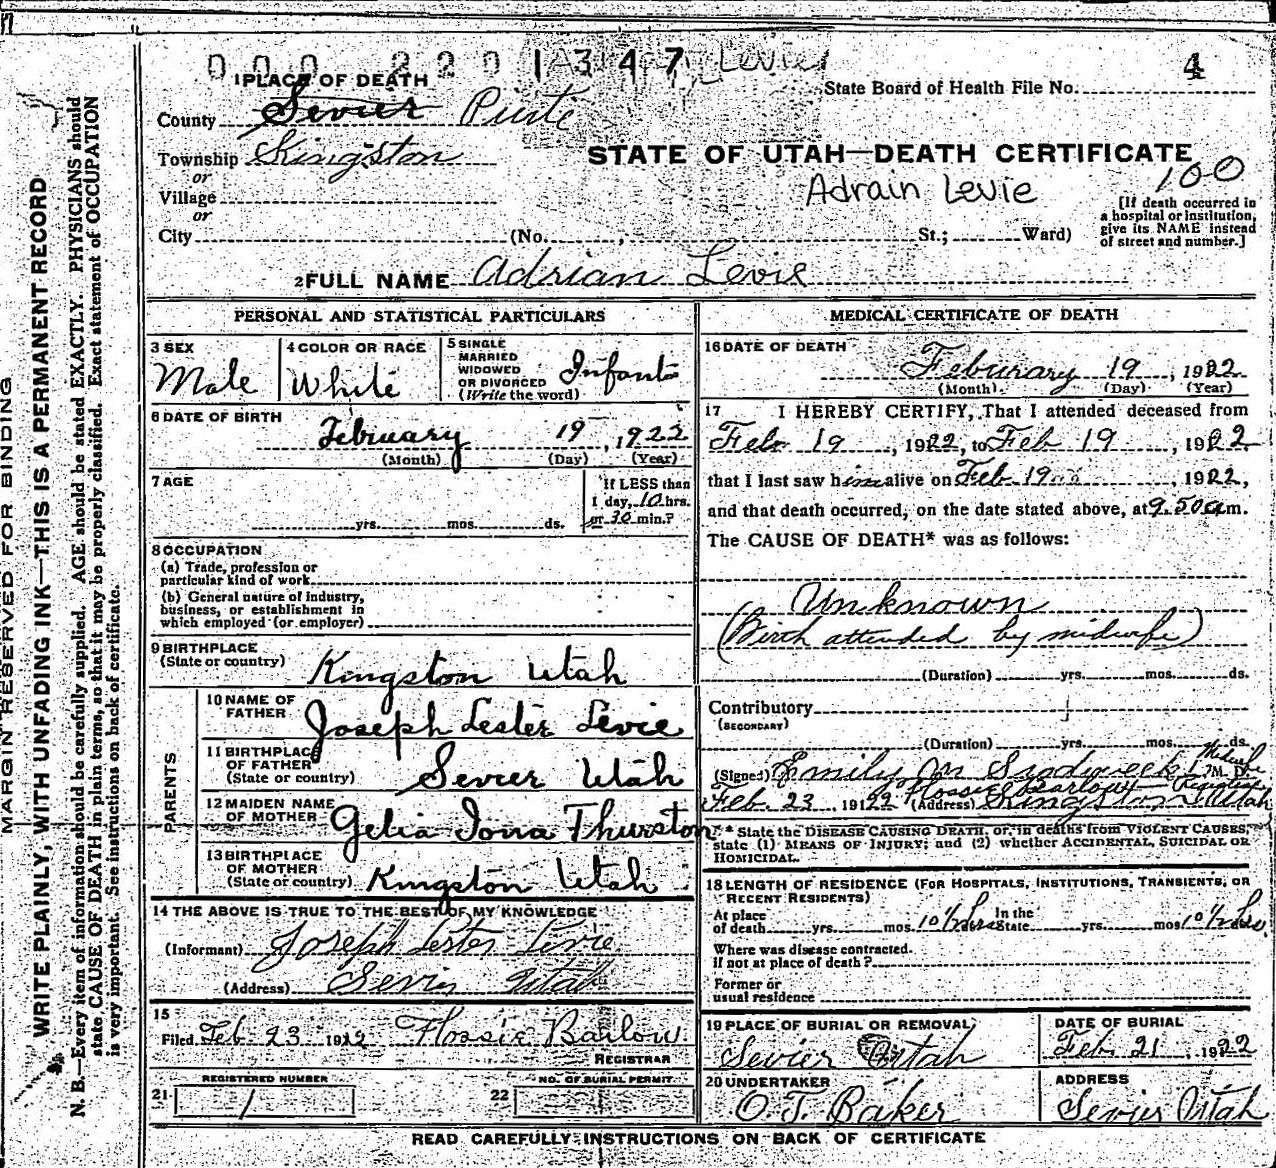 000 220 1347
Levie
4
1 PLACE OF DEATH
State Board of Health File No.
County Sevier Piute
Township Kingston
or
Village
or
City (No. , St.; Ward)
STATE OF UTAH—DEATH CERTIFICATE
Adrain Levie
100
[If death occurred in
a hospital or institution,
give its NAME instead
of street and number.]
2 FULL NAME Adrian Levie
PERSONAL AND STATISTICAL PARTICULARS
3 SEX
Male
4 COLOR OR RACE
White
5 SINGLE
MARRIED
WIDOWED
OR DIVORCED
(Write the word)
Infant
6 DATE OF BIRTH
February 19, 1922
(Month) (Day) (Year)
7 AGE
yrs. mos. ds.
If LESS than
1 day, 10 hrs.
or 30 min.?
8 OCCUPATION
(a) Trade, profession or
particular kind of work
(b) General nature of industry,
business, or establishment in
which employed (or employer)
9 BIRTHPLACE
(State or country) Kingston Utah
PARENTS
10 NAME OF
FATHER Joseph Lester Levie
11 BIRTHPLACE
OF FATHER
(State or country) Sevier Utah
12 MAIDEN NAME
OF MOTHER Gelia Iona Thurston
13 BIRTHPLACE
OF MOTHER
(State or country) Kingston Utah
14 THE ABOVE IS TRUE TO THE BEST OF MY KNOWLEDGE
(Informant) Joseph Lester Levie
(Address) Sevier Utah
15
Filed Feb 23 1922 Flossie Barlow
REGISTRAR
REGISTERED NUMBER
21 1
NO. OF BURIAL PERMIT
22
MEDICAL CERTIFICATE OF DEATH
16 DATE OF DEATH
Feburary 19, 1922
(Month) (Day) (Year)
17 I HEREBY CERTIFY, That I attended deceased from
Feb 19, 1922, to Feb 19, 1922
that I last saw him alive on Feb 19, 1922,
and that death occurred, on the date stated above, at 9.50 a m.
The CAUSE OF DEATH* was as follows:
Unknown
(Birth attended by midwife)
(Duration) yrs. mos. ds.
Contributory
(SECONDARY)
(Duration) yrs. mos. ds.
(Signed) Emily M Midwife M. D.
Flossie Barlow Registrar
Feb 23 1922 (Address) Kingston Utah
* State the DISEASE CAUSING DEATH, or, in deaths from VIOLENT CAUSES,
state (1) MEANS OF INJURY; and (2) whether ACCIDENTAL, SUICIDAL OR
HOMICIDAL.
18 LENGTH OF RESIDENCE (FOR HOSPITALS, INSTITUTIONS, TRANSIENTS, OR
RECENT RESIDENTS)
At place In the
of death yrs. mos. 10½ hrs State yrs. mos. 10½ hrs
Where was disease contracted,
if not at place of death?
Former or
usual residence
19 PLACE OF BURIAL OR REMOVAL
Sevier Utah
DATE OF BURIAL
Feb. 21, 1922
20 UNDERTAKER
O. T. Baker
ADDRESS
Sevier Utah
READ CAREFULLY INSTRUCTIONS ON BACK OF CERTIFICATE
MARGIN RESERVED FOR BINDING
WRITE PLAINLY, WITH UNFADING INK—THIS IS A PERMANENT RECORD
N. B.—Every item of information should be carefully supplied. AGE should be stated EXACTLY. PHYSICIANS should
state CAUSE OF DEATH in plain terms, so that it may be properly classified. Exact statement of OCCUPATION
is very important. See instructions on back of certificate.